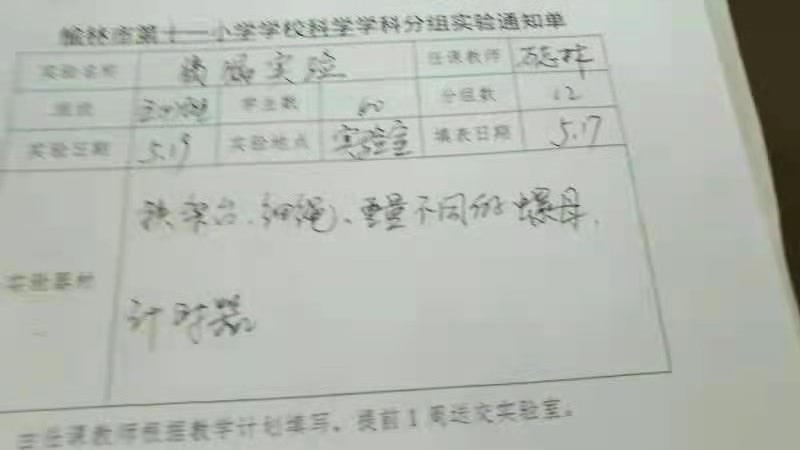 榆林市第十一小学学校科学学科分组实验通知单
实验名称 摆 实验 任课教师
班级 学生数 60 分组数 12
实验日期 5.19 实验地点 实验室 填表日期 5.17
铁架台、细绳、重量不同的螺母、
实验器材
计时器
由任课教师根据教学计划填写,提前1周送交实验室。